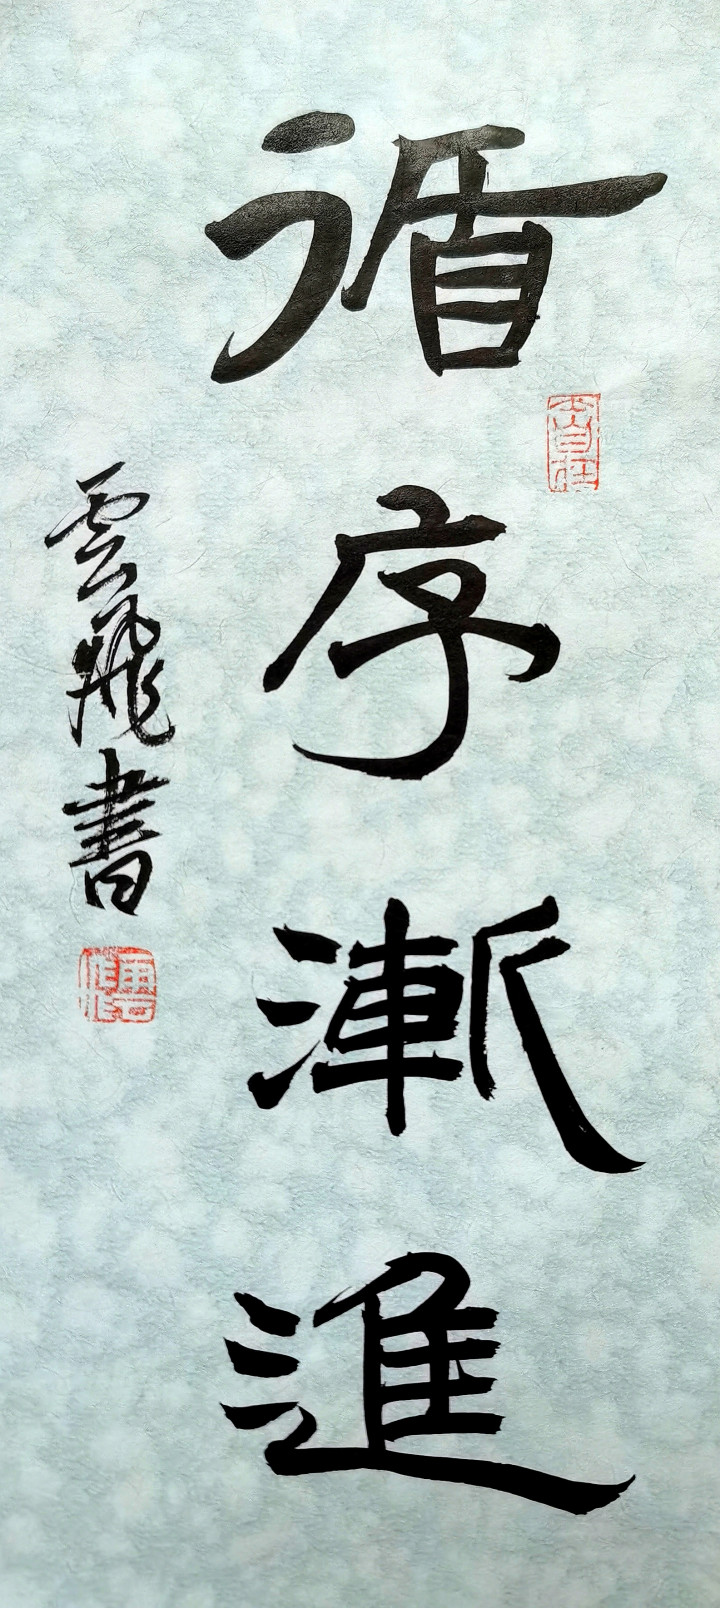 循序漸進
雲飛書